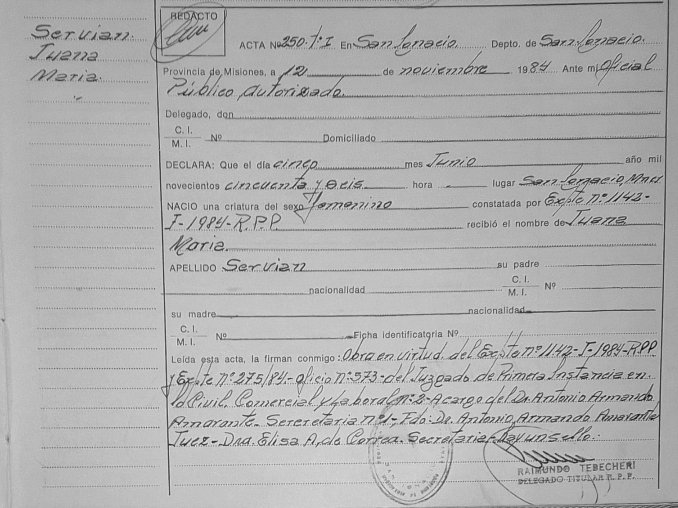 Servian
Juana
Maria
REDACTO
ACTA Nº 250-Tº I En San Ignacio Depto. de San Ignacio
Provincia de Misiones, a 12 de noviembre 1984 Ante mi Oficial
Público Autorizado
Delegado, don
C. I.
M. I. Nº Domiciliado
DECLARA: Que el día cinco mes Junio año mil
novecientos cincuenta y seis hora lugar San Ignacio, Mnes
NACIO una criatura del sexo Femenino constatada por Expte nº 1142-
I-1984-R.P.P. recibió el nombre de Juana
Maria
APELLIDO Servian su padre
nacionalidad C. I.
M. I. Nº
su madre nacionalidad
C. I.
M. I. Nº Ficha identificatoria Nº
Leída esta acta, la firman conmigo: Obra en virtud del Expte nº 1142-I-1984-RPP
y Expte nº 275/84-oficio nº 573-del Juzgado de Primera Instancia en
lo Civil, Comercial y Laboral nº 8-A cargo del Dr. Antonio Armando
Amarante-Secretaria nº 1-Fdo: Dr. Antonio Armando Amarante
Juez-Dra. Elisa A, de Correa. Secretaria-Hay un sello.
RAIMUNDO TEBECHERI
DELEGADO TITULAR R. P. P.